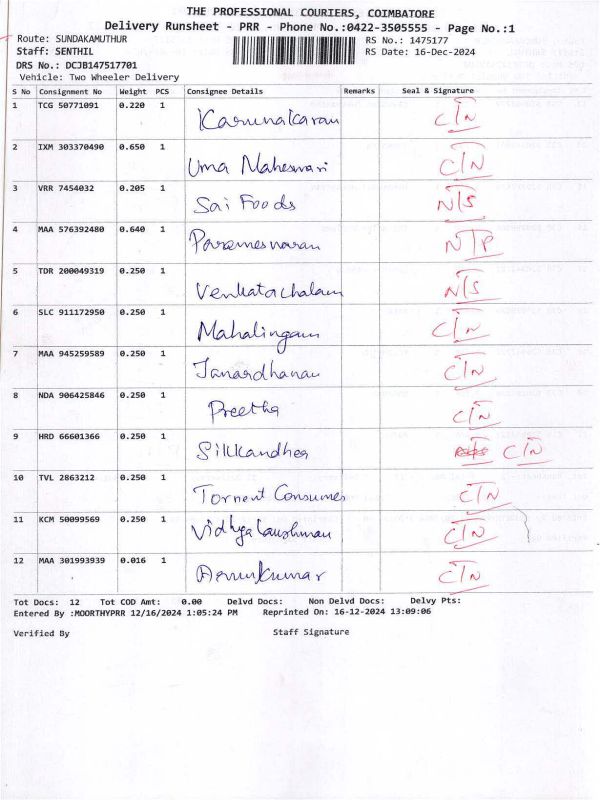 THE PROFESSIONAL COURIERS, COIMBATORE
Delivery Runsheet - PRR - Phone No.:0422-3505555 - Page No.:1
Route: SUNDAKAMUTHUR RS No.: 1475177
Staff: SENTHIL RS Date: 16-Dec-2024
DRS No.: DCJB147517701
Vehicle: Two Wheeler Delivery
S No Consignment No Weight PCS Consignee Details Remarks Seal & Signature
1 TCG 50771091 0.220 1 Karunakaran C/N
2 IXM 303370490 0.650 1 Uma Maheswari C/N
3 VRR 7454032 0.205 1 Sai Foods N/S
4 MAA 576392480 0.640 1 Parameswaran N/P
5 TDR 200049319 0.250 1 Venkatachalam N/S
6 SLC 911172950 0.250 1 Mahalingam C/N
7 MAA 945259589 0.250 1 Janardhanan C/N
8 NDA 906425846 0.250 1 Preetha C/N
9 HRD 66601366 0.250 1 C/N
10 TVL 2863212 0.250 1 Torrent Consumes C/N
11 KCM 50099569 0.250 1 C/N
12 MAA 301993939 0.016 1 C/N
Tot Docs: 12 Tot COD Amt: 0.00 Delvd Docs: Non Delvd Docs: Delvy Pts:
Entered By :MOORTHYPRR 12/16/2024 1:05:24 PM Reprinted On: 16-12-2024 13:09:06
Verified By Staff Signature